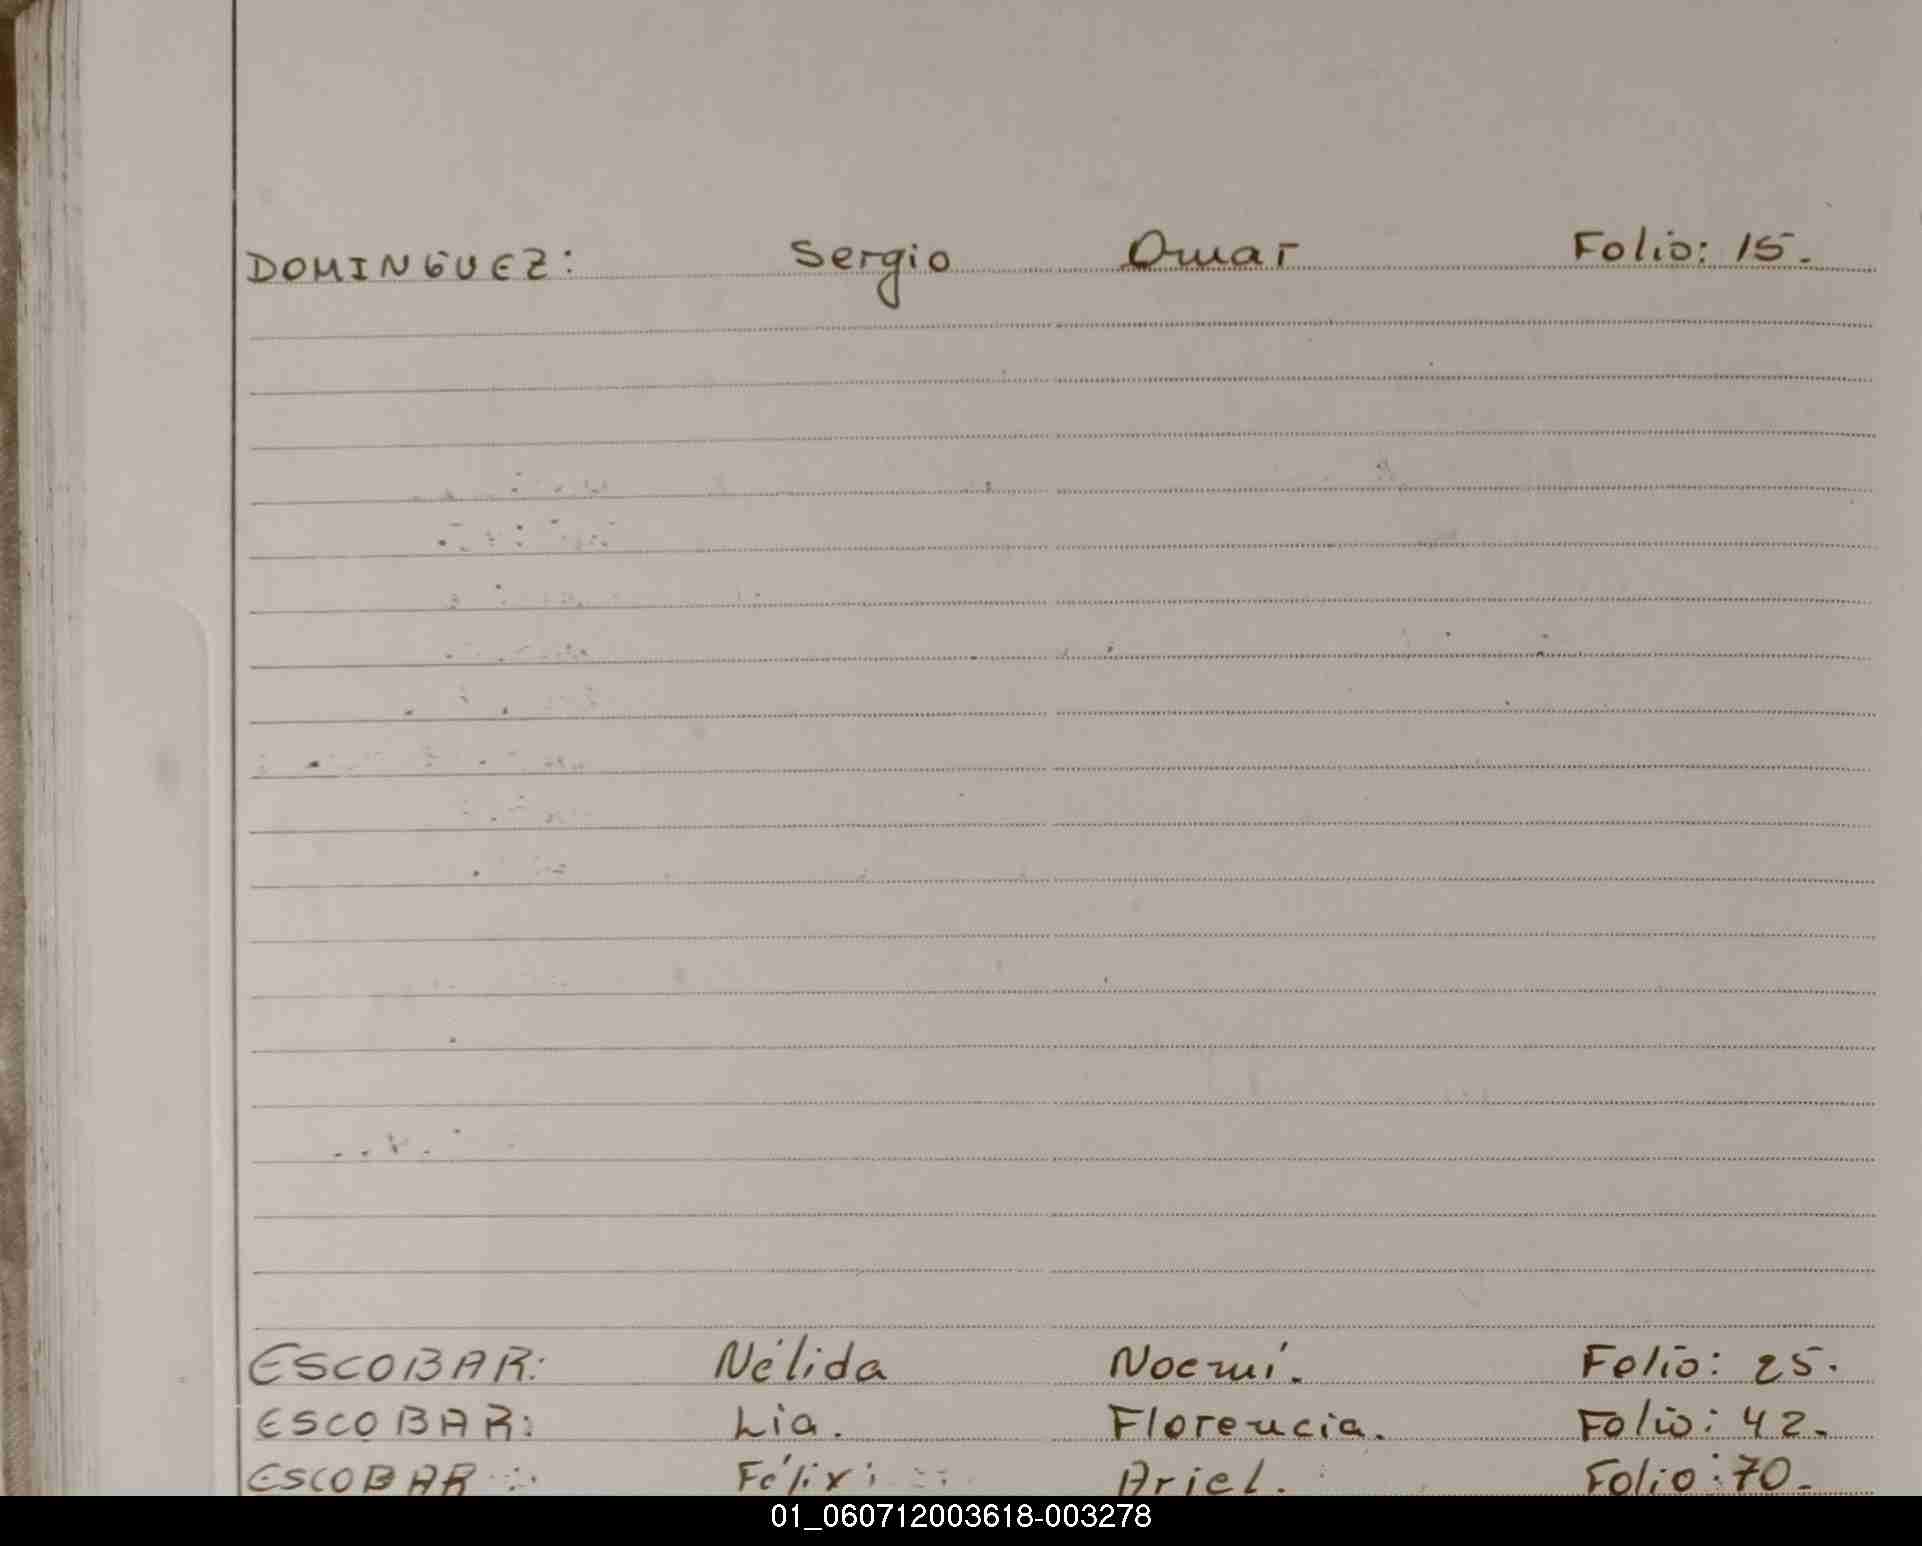 DOMINGUEZ: Sergio Omar Folio: 15.
ESCOBAR: Nélida Noemí. Folio: 25.
ESCOBAR: Lia. Florencia. Folio: 42.
ESCOBAR : Félix: Ariel. Folio: 70.
01_060712003618-003278